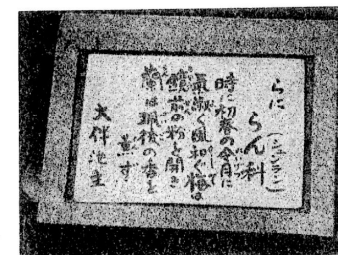 らに
(シュンラン)
らん科
時に初春の令月に
氣淑く風和ぐ梅は
鏡前の粉と開き
蘭は珮後の香を
薫す
大伴池主